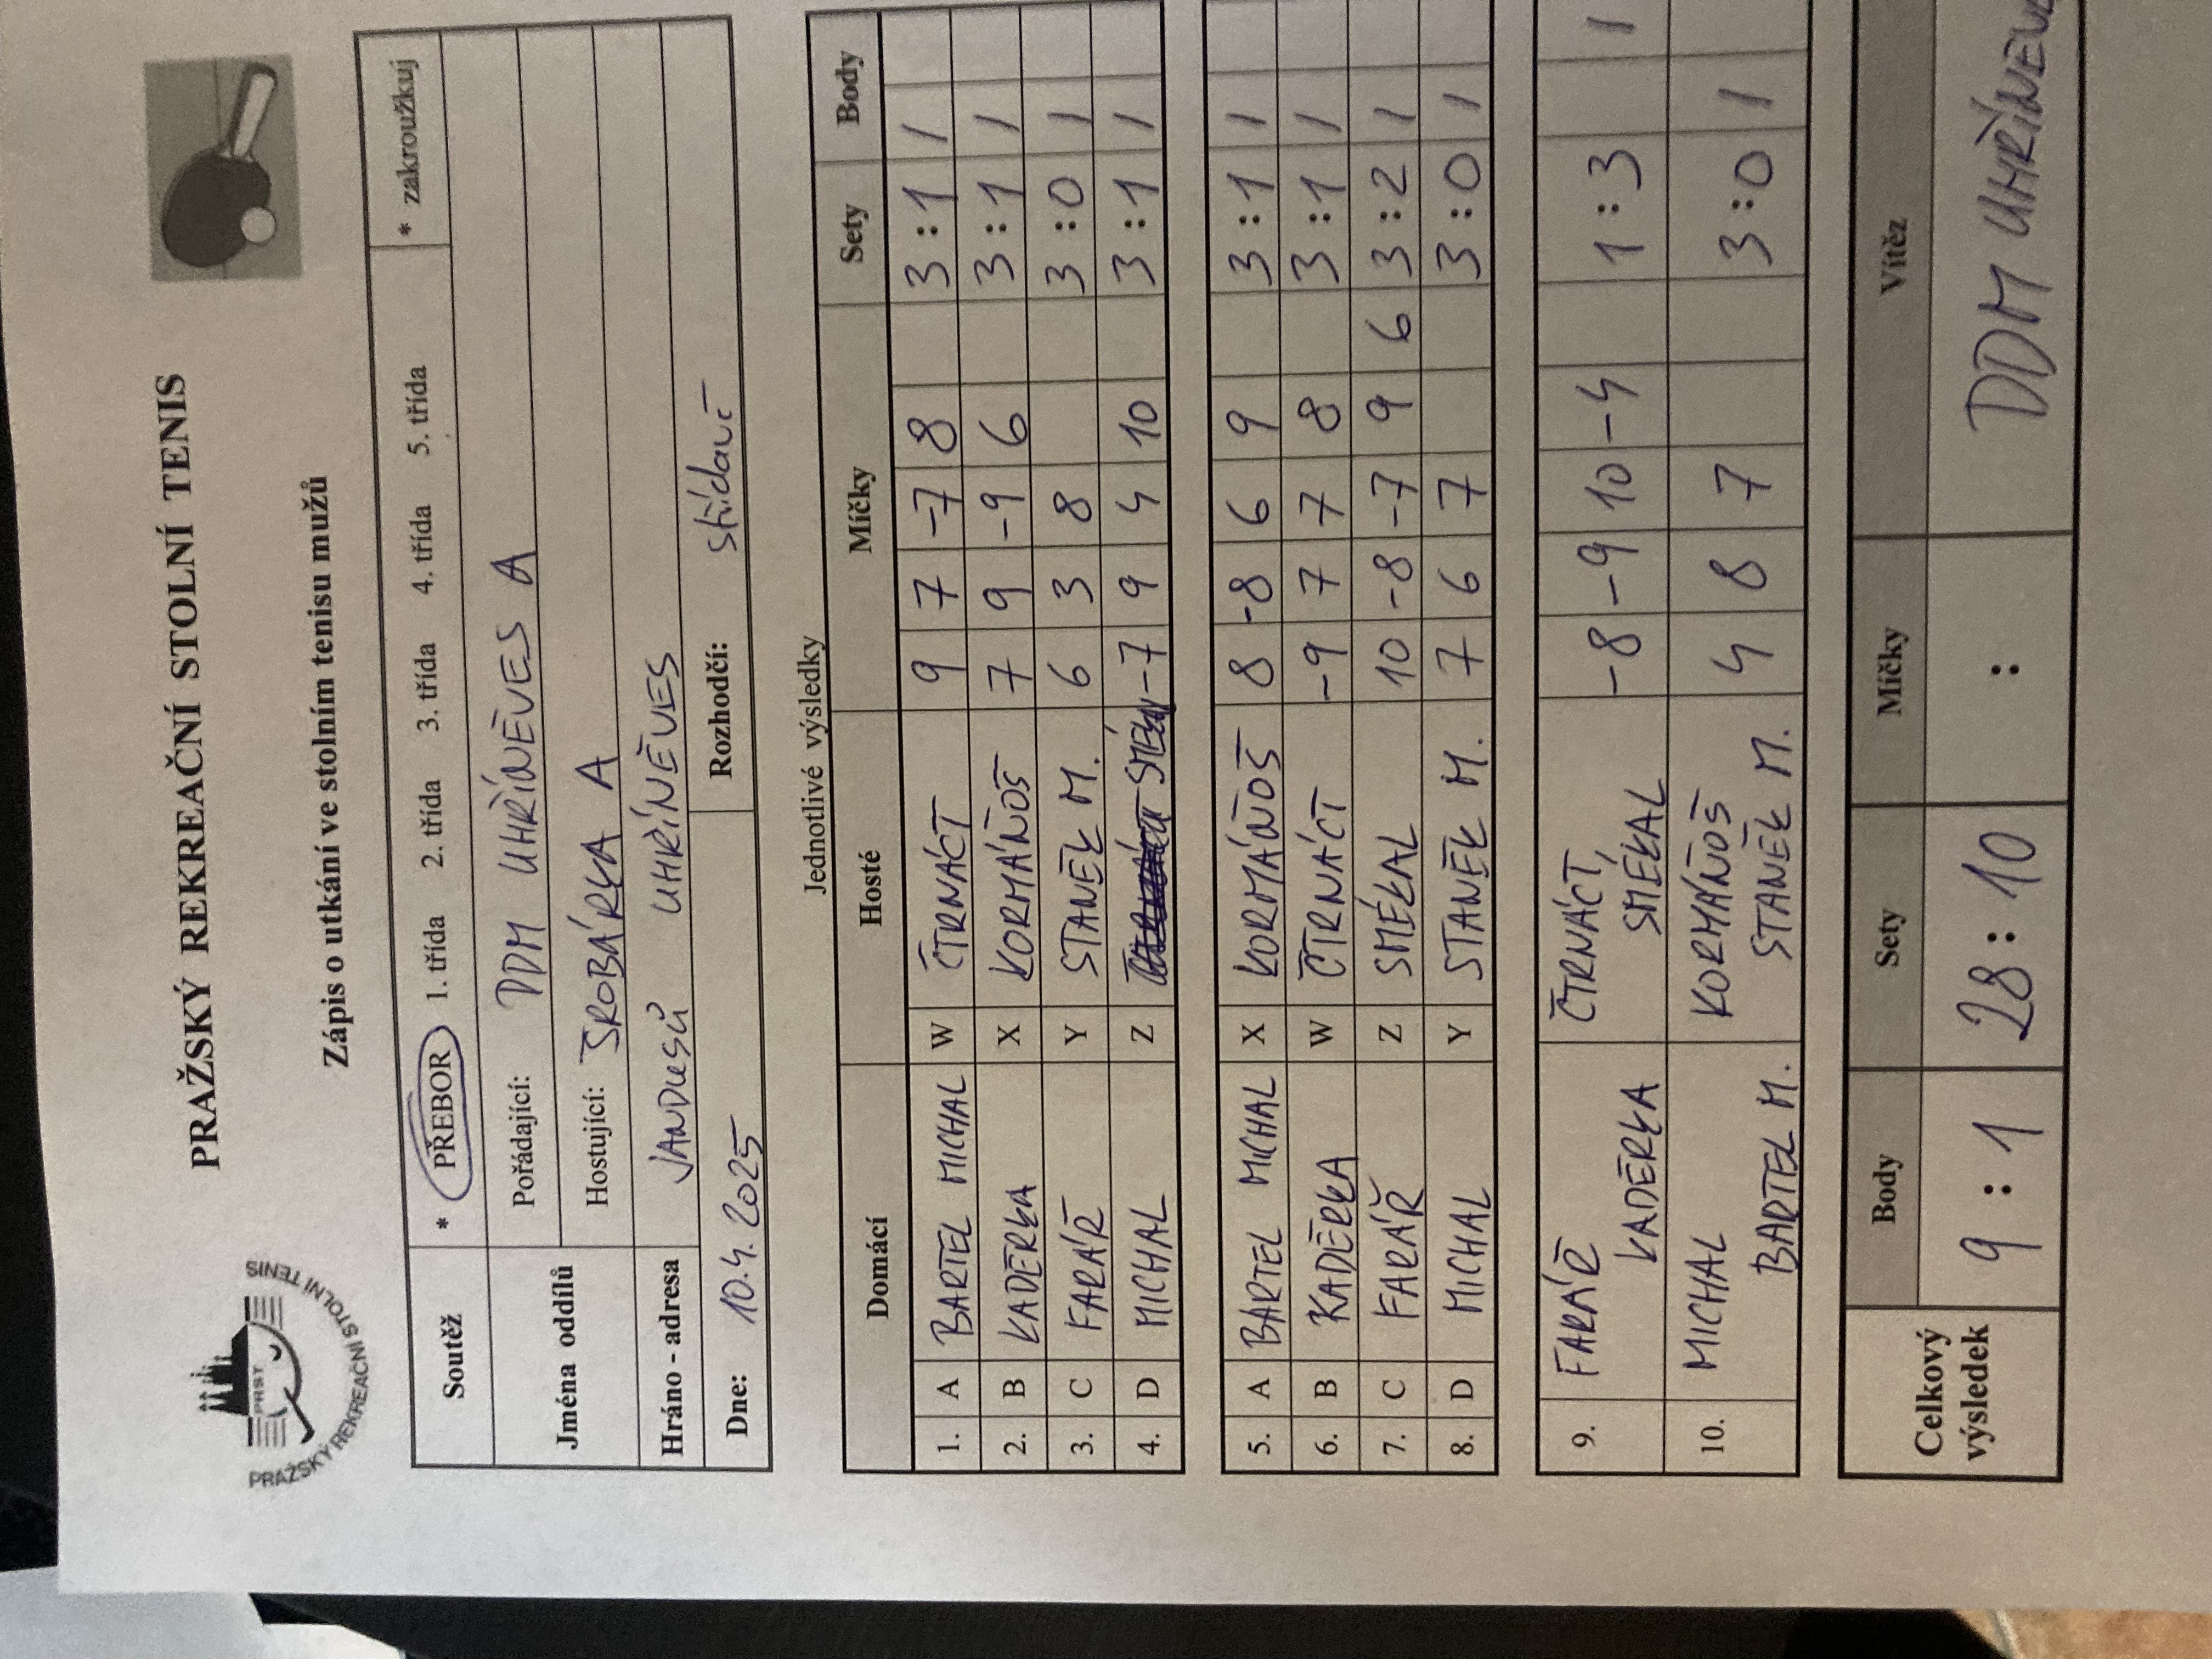 PRAŽSKÝ REKREAČNÍ STOLNÍ TENIS
PRST
PRAŽSKÝ REKREAČNÍ STOLNÍ TENIS
Zápis o utkání ve stolním tenisu mužů
Soutěž * PŘEBOR 1. třída 2. třída 3. třída 4. třída 5. třída * zakroužkuj
Jména oddílů Pořádající: DDM UHŘÍNĚVES A
Hostující: ŠROBÁRKA A
Hráno - adresa JANDUSŮ UHŘÍNĚVES
Dne: 10.4.2025 Rozhodčí: střídaví
Jednotlivé výsledky
Domácí Hosté Míčky Sety Body
1. A BARTEL MICHAL W ČTRNÁCT 9 7 -7 8 3:1 1
2. B KADĚRKA X KORMÁŇOŠ 7 9 -9 6 3:1 1
3. C FARÁŘ Y STANĚK M. 6 3 8 3:0 1
4. D MICHAL Z -7 9 4 10 3:1 1
5. A BARTEL MICHAL X KORMÁŇOŠ 8 -8 6 9 3:1 1
6. B KADĚRKA W ČTRNÁCT -9 7 7 8 3:1 1
7. C FARÁŘ Z SMÉKAL 10 -8 -7 9 6 3:2 1
8. D MICHAL Y STANĚK M. 7 6 7 3:0 1
9. FARÁŘ ČTRNÁCT -8 -9 10 -4 1:3 1
KADĚRKA SMÉKAL
10. MICHAL KORMÁŇOŠ 4 8 7 3:0 1
BARTEL M. STANĚK M.
Celkový výsledek Body Sety Míčky Vítěz
9 : 1 28 : 10 : DDM UHŘÍNĚV